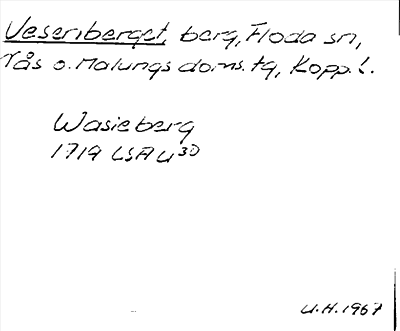 Vesenberget, berg, Floda sn,
Nås o. Malungs doms. tg, Kopp. l.
Wasieberg
1719 LSA U30
U.H. 1967